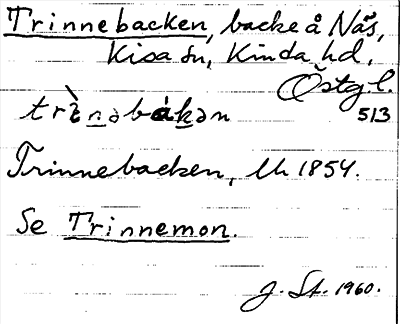 Trinnebacken, backe å Näs,
Kisa sn, Kinda hd,
Östg l.
trìnəbákən 513
Trinnebacken, Uh 1854.
Se Trinnemon.
J. St. 1960.